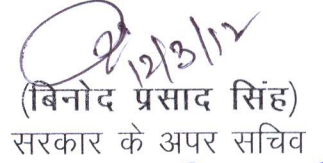 12/3/12
(बिनोद प्रसाद सिंह)
सरकार के अपर सचिव